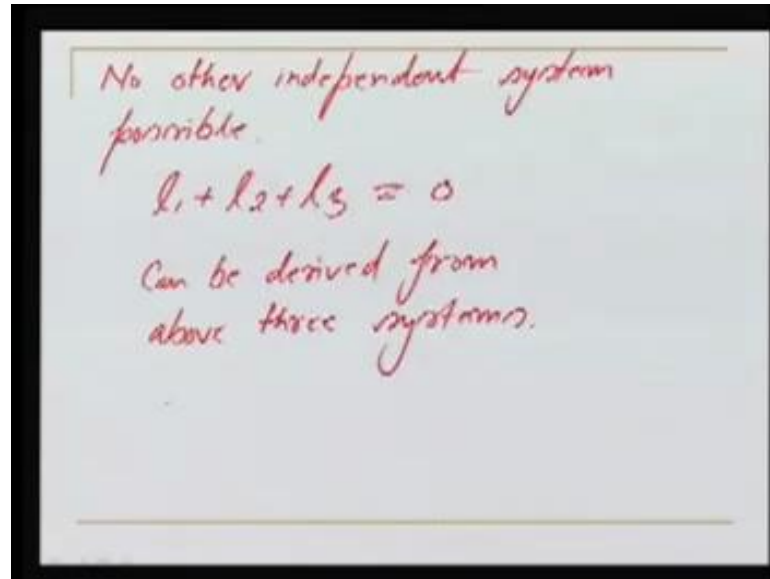 No other independent system
possible.
l₁ + l₂ + l₃ = 0
Can be derived from
above three systems.